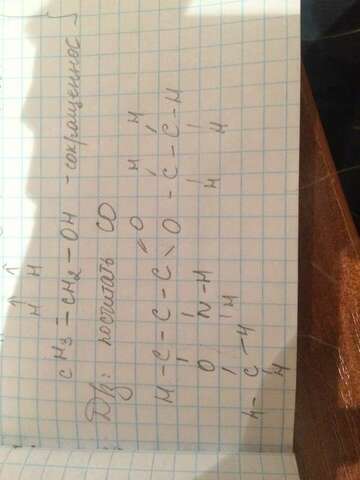 H H
CH₃ – CH₂ – OH - сокращенност
Дз: посчитать СО
O H H
H – C – C – C \ O – C – C – H
O N – H H H
H
H – C – H
H